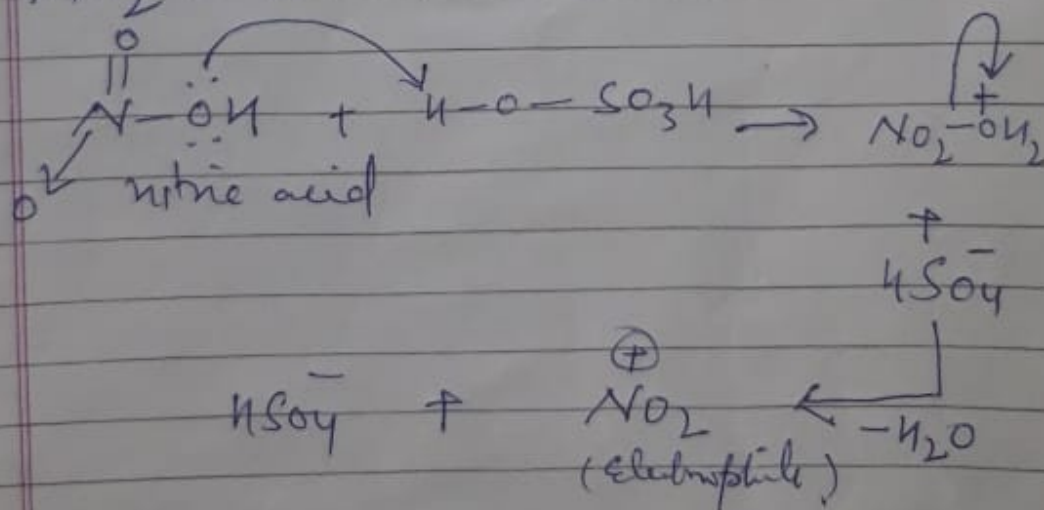 O
N-OH + H-O-SO3H → NO2-OH2
O nitric acid
+
HSO4-
HSO4- + NO2 ← -H2O
(Electrophile)